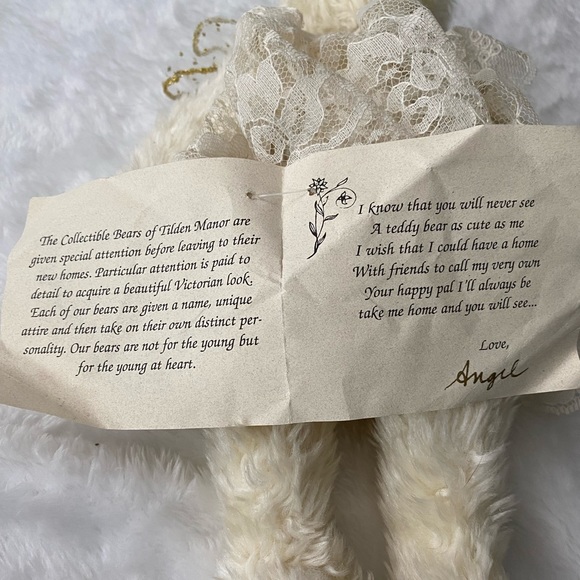 The Collectible Bears of Tilden Manor are
given special attention before leaving to their
new homes. Particular attention is paid to
detail to acquire a beautiful Victorian look.
Each of our bears are given a name, unique
attire and then take on their own distinct per-
sonality. Our bears are not for the young but
for the young at heart.
I know that you will never see
A teddy bear as cute as me
I wish that I could have a home
With friends to call my very own
Your happy pal I'll always be
take me home and you will see...
Love,
Angel